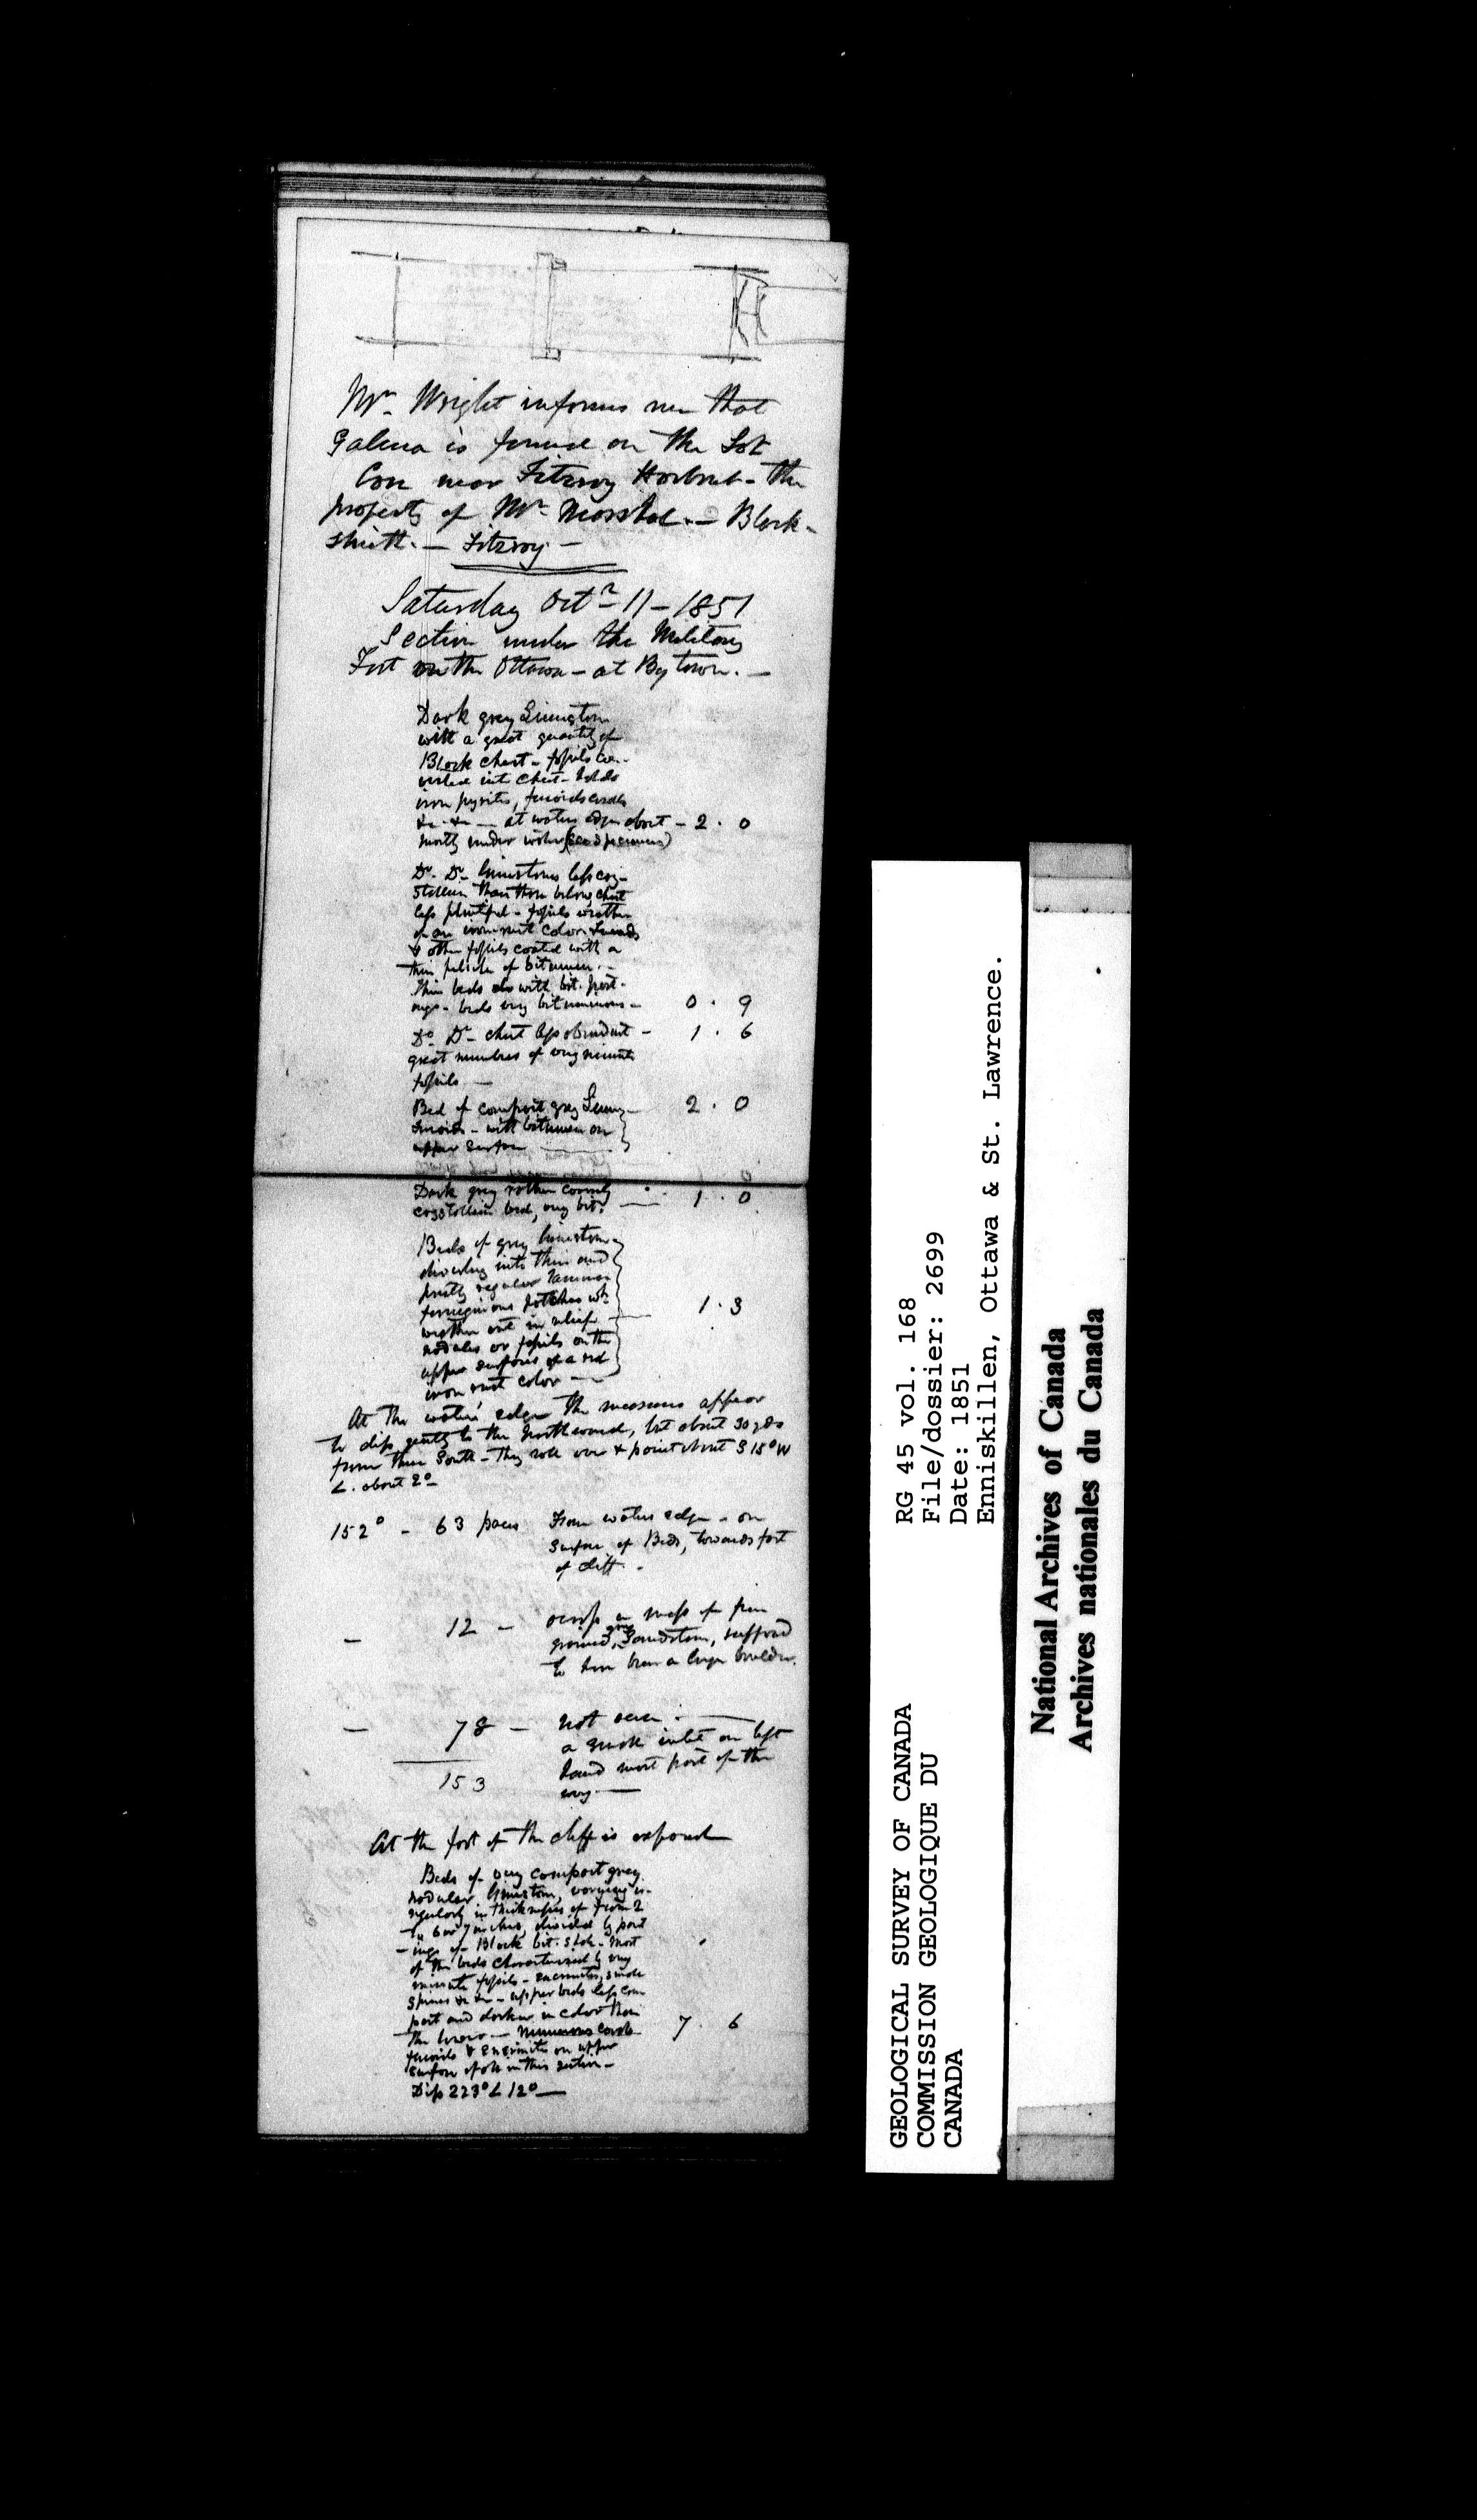 Mr. Wright informs me that
Galena is found on the
Con near Fitzroy Harbour - the
property of Mr. Marshal. - Black-
smith. - Fitzroy -
Saturday Octr 11 - 1851
Section under the Military
Fort on the Ottawa - at Bytown. -
Dark grey Limestone
with a great quantity of
Black chert - fossils con-
verted into chert - holds
iron pyrites, fucoids corals
&c. &c - at waters edge about - 2 . 0
mostly under water (see specimens)
Do. Do. limestones less cry-
stalline than those below, chert
less plentiful - fossils weather
of an iron rust color fucoids
& other fossils coated with a
thin pelicle of bitumen. -
Thin beds also with bit. part-
ings - beds very bituminous - 0 . 9
Do. Do. chert less abundant - 1 . 6
great numbers of very minute
fossils -
Bed of compact grey Lime - 2 . 0
fucoids - with bitumen on
upper surface
Dark grey rather coarsely
crystalline bed, very bit. - 1 . 0
Beds of grey limestone
dividing into thin and
pretty regular laminae
ferruginous patches wh.
weather out in relief - 1 . 3
nodules or fossils on the
upper surfaces of a red
iron rust color -
At the waters edge the measures appear
to dip gently to the Northward, but about 30 yds
from there South - they roll over & point about S 15° W
∠. about 2° -
152° - 63 paces From waters edge - on
surface of Beds, towards foot
of cliff. -
- 12 - across a mass of fine
grained grey Sandstone, supposed
to have been a large boulder.
- 78 - not seen. -
a small inlet on left
153 hand most part of the
way -
At the foot of the cliff is exposed
Beds of very compact grey
nodular limestone, varying ir-
regularly in thickness of from 2
to 6 or 7 inches, divided by part
-ings of Black bit. shale - most
of the beds characterised by very
minute fossils - encrinites, small
spines &c &c - upper beds less com
pact and darker in color than
the lower - Numerous corals 7 . 6
fucoids & Encrinites on upper
surface of all in this section -
Dip 223° ∠ 12° -
GEOLOGICAL SURVEY OF CANADA
COMMISSION GEOLOGIQUE DU
CANADA
RG 45 vol. 168
File/dossier: 2699
Date: 1851
Enniskillen, Ottawa & St. Lawrence.
National Archives of Canada
Archives nationales du Canada